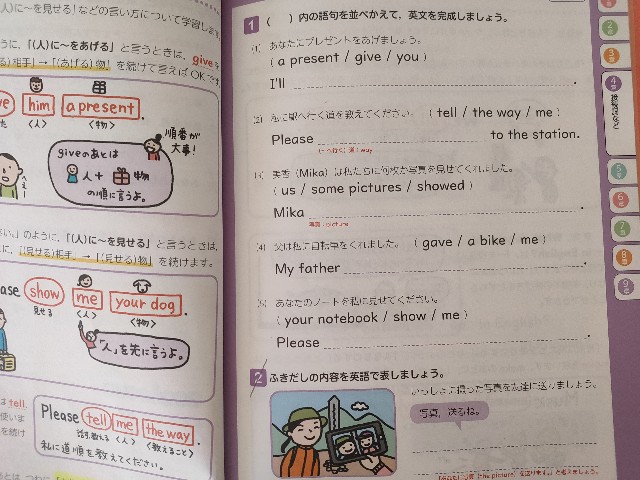 に～を見せる」などの言い方について学習します
うに、「(人)に～をあげる」と言うときは、giveを
相手」→「(あげる)物」を続けて言えばOKです
him a present.
〈人〉 〈物〉
順番が
大事!
giveのあとは
人+ 物
の順に言うよ。
のように、「(人)に～を見せる」と言うときは、
に、「(見せる)相手」→「(見せる)物」を続けます。
ase show me your dog.
見せる 〈人〉 〈物〉
「人」を先に言うよ。
は tell.
Please tell me the way.
話す,教える 〈人〉 〈教えること〉
私に道順を教えてください。
1 ( )内の語句を並べかえて、英文を完成しましょう。
(1) あなたにプレゼントをあげましょう。
( a present / give / you )
I'll .
(2) 私に駅へ行く道を教えてください。 ( tell / the way / me )
Please to the station.
(～へ行く)道:way
(3) 美香(Mika)は私たちに何枚か写真を見せてくれました。
( us / some pictures / showed )
Mika .
写真:picture
(4) 父は私に自転車をくれました。 ( gave / a bike / me )
My father .
(5) あなたのノートを私に見せてください。
( your notebook / show / me )
Please .
2 ふきだしの内容を英語で表しましょう。
いっしょに撮った写真を友達に送りましょう。
写真、送るね。
4章
5章
6章
7章
8章
9章